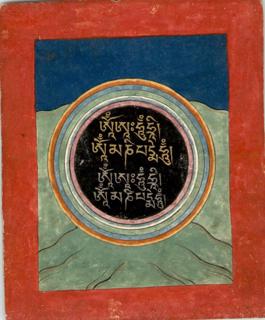 ཨོཾ་ཨཱཿཧཱུྃ་ཧྲཱི
ཨོཾ་མ་ཎི་པ་དྨེ་ཧཱུྃ།
ཨོཾ་ཨཱཿཧཱུྃ་ཧྲཱི
ཨོཾ་མ་ཎི་པ་དྨེ་ཧཱུྃ།